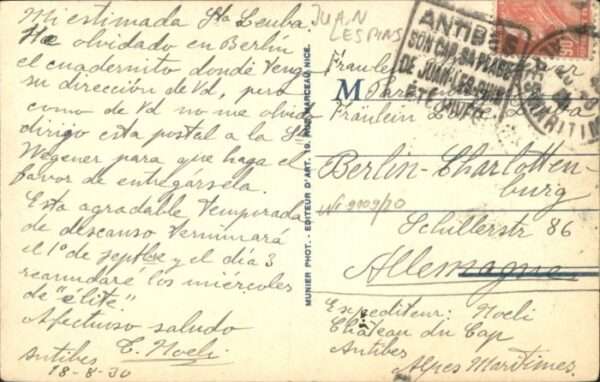 Mi estimada Sta Leuba.
He olvidado en Berlín
el cuadernito donde tengo
su dirección de Vd, pero
como de Vd no me olvido
dirijo esta postal a la Sta
Wegener para que haga el
favor de entregársela.
Esta agradable temporada
de descanso terminará
el 1º de septbre y el día 3
reanudaré los miércoles
de "élite".
Afectuoso saludo
Antibes
18-8-30
JUAN
LES PINS
MUNIER PHOT. - EDITEUR D'ART. 19, RUE MARCEAU, NICE.
ANTIBES
SON CAP, SA PLAGE
DE JUAN-LES-PINS
ÉTÉ
MARITIMES
Fräulein
M
Fräulein
Berlin-Charlotten-
burg
Schillerstr 86
Allemagne
Expediteur: Noeli
Château du Cap
Antibes
Alpes Maritimes.